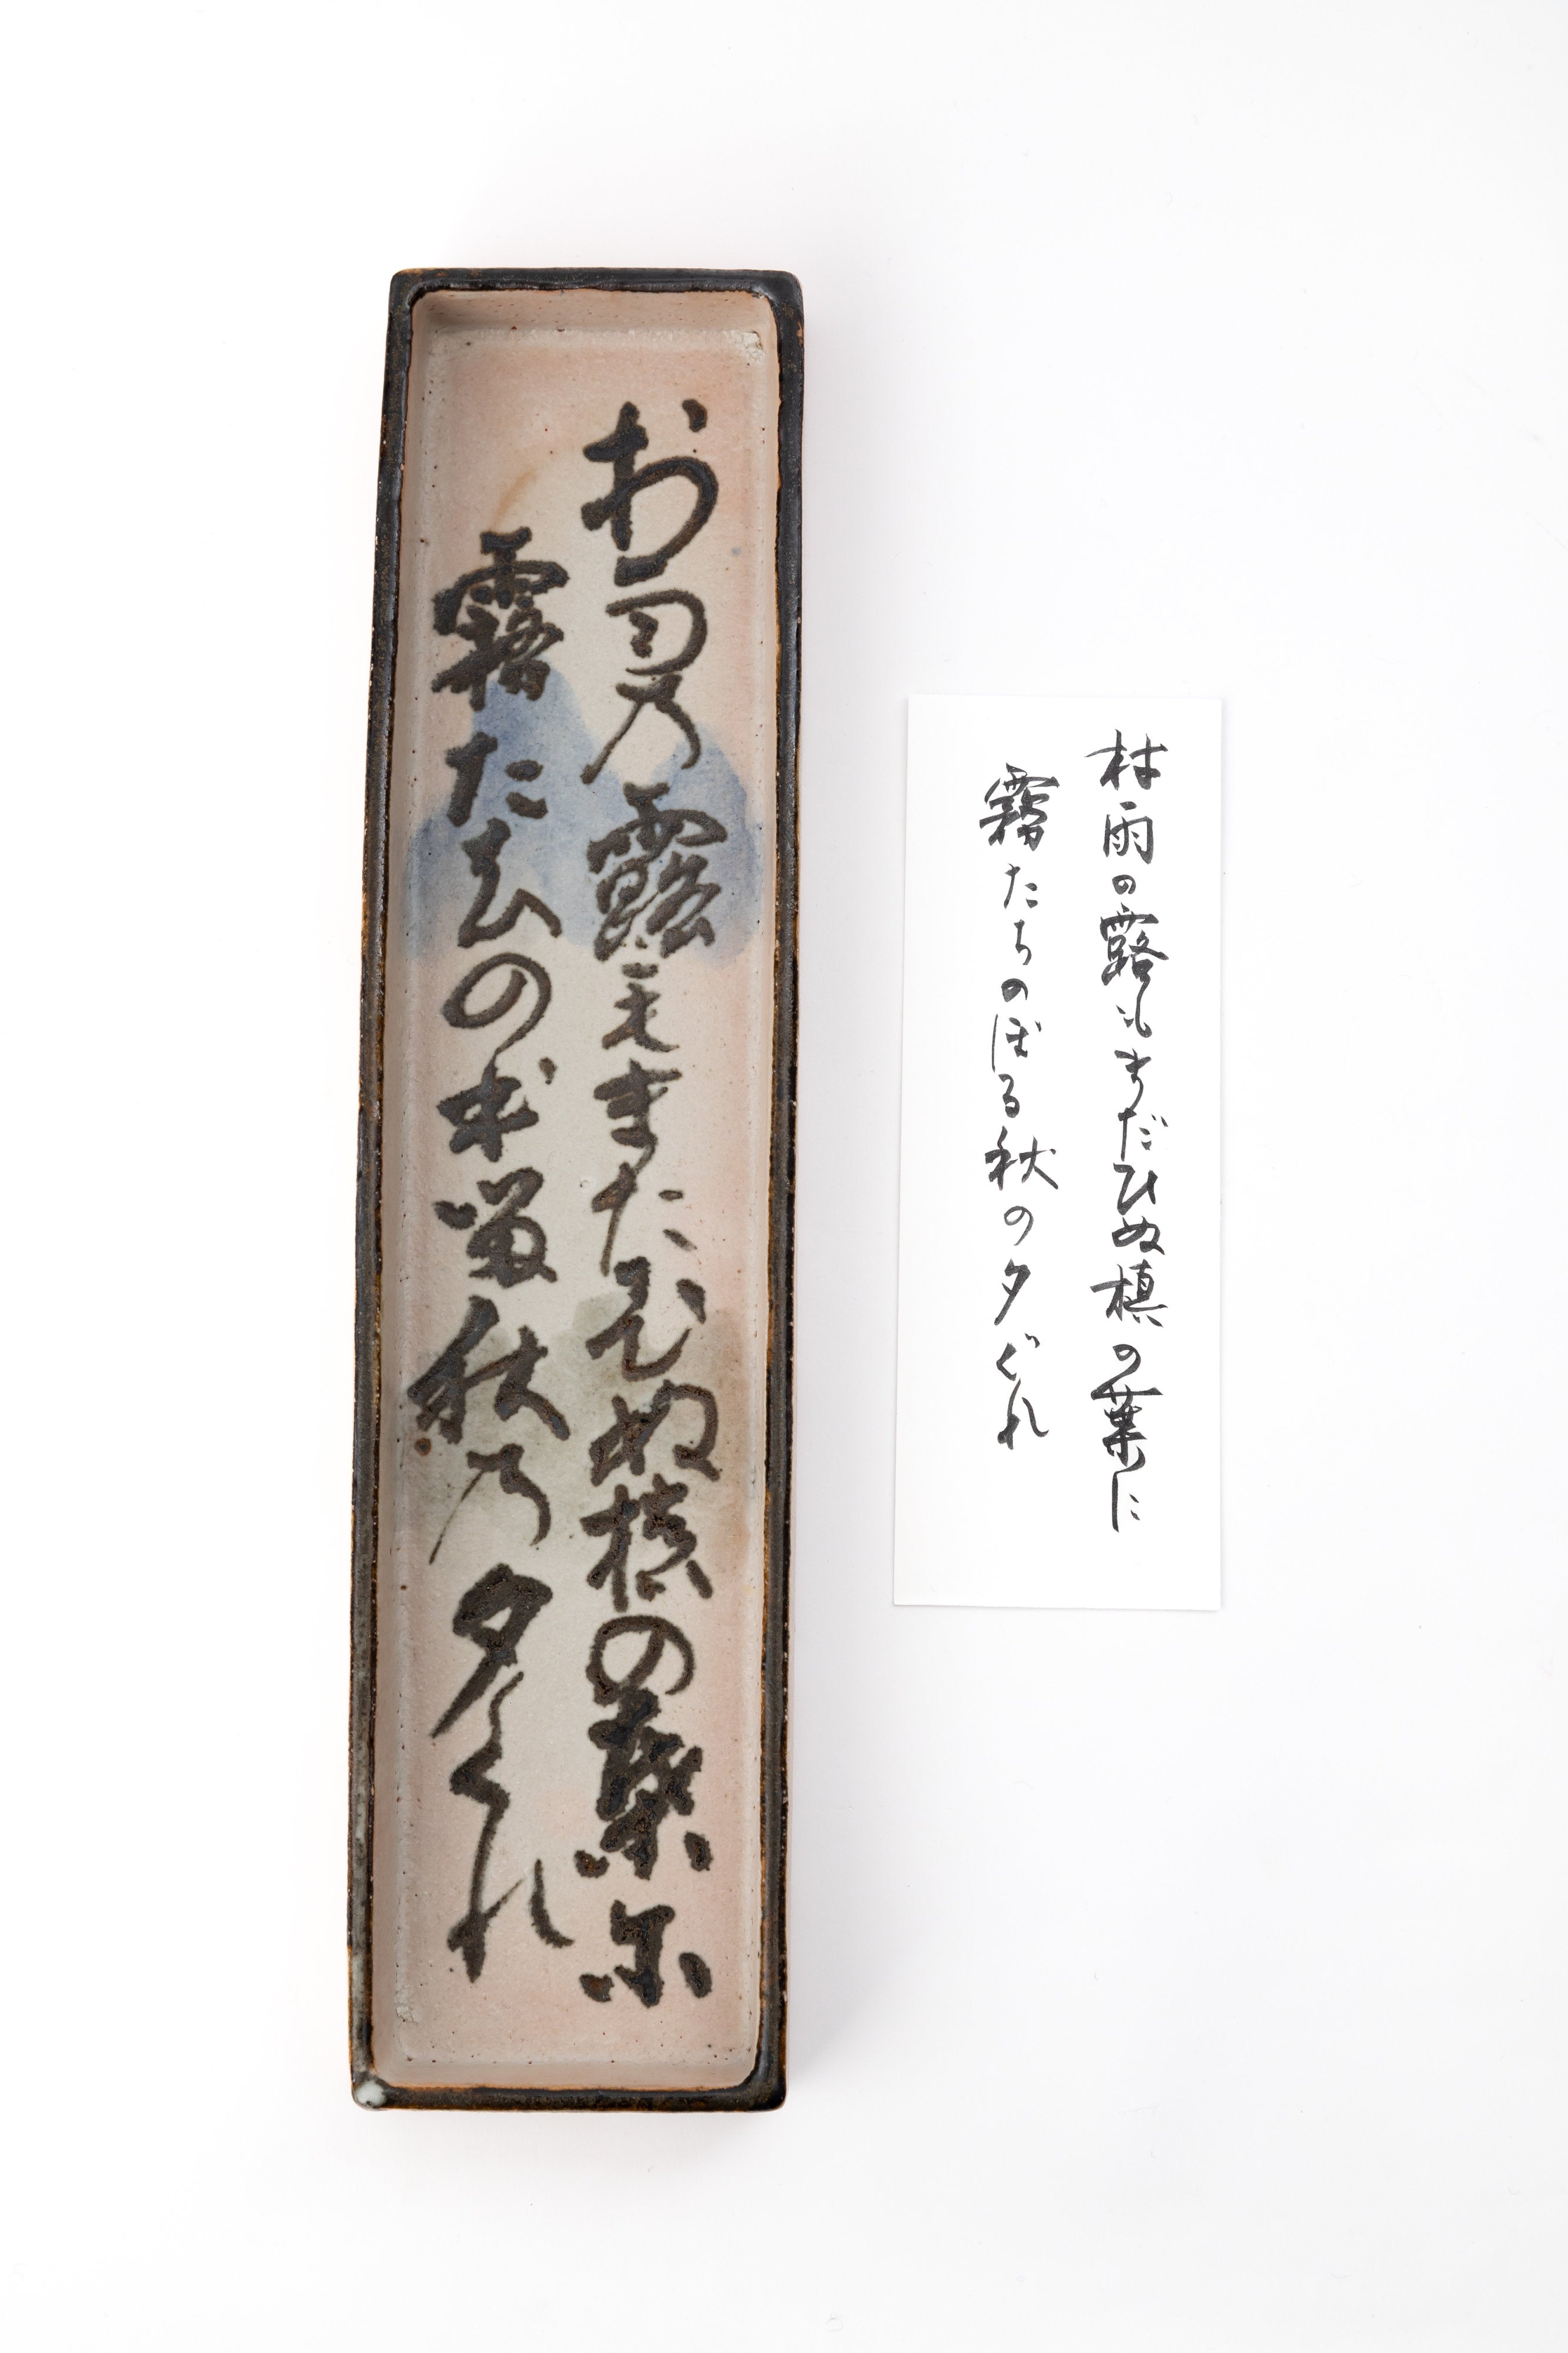 村雨乃露毛またひぬ槙の葉尓
霧たちの本留秋乃夕くれ
村雨の露もまだひぬ槙の葉に
霧たちのぼる秋の夕ぐれ